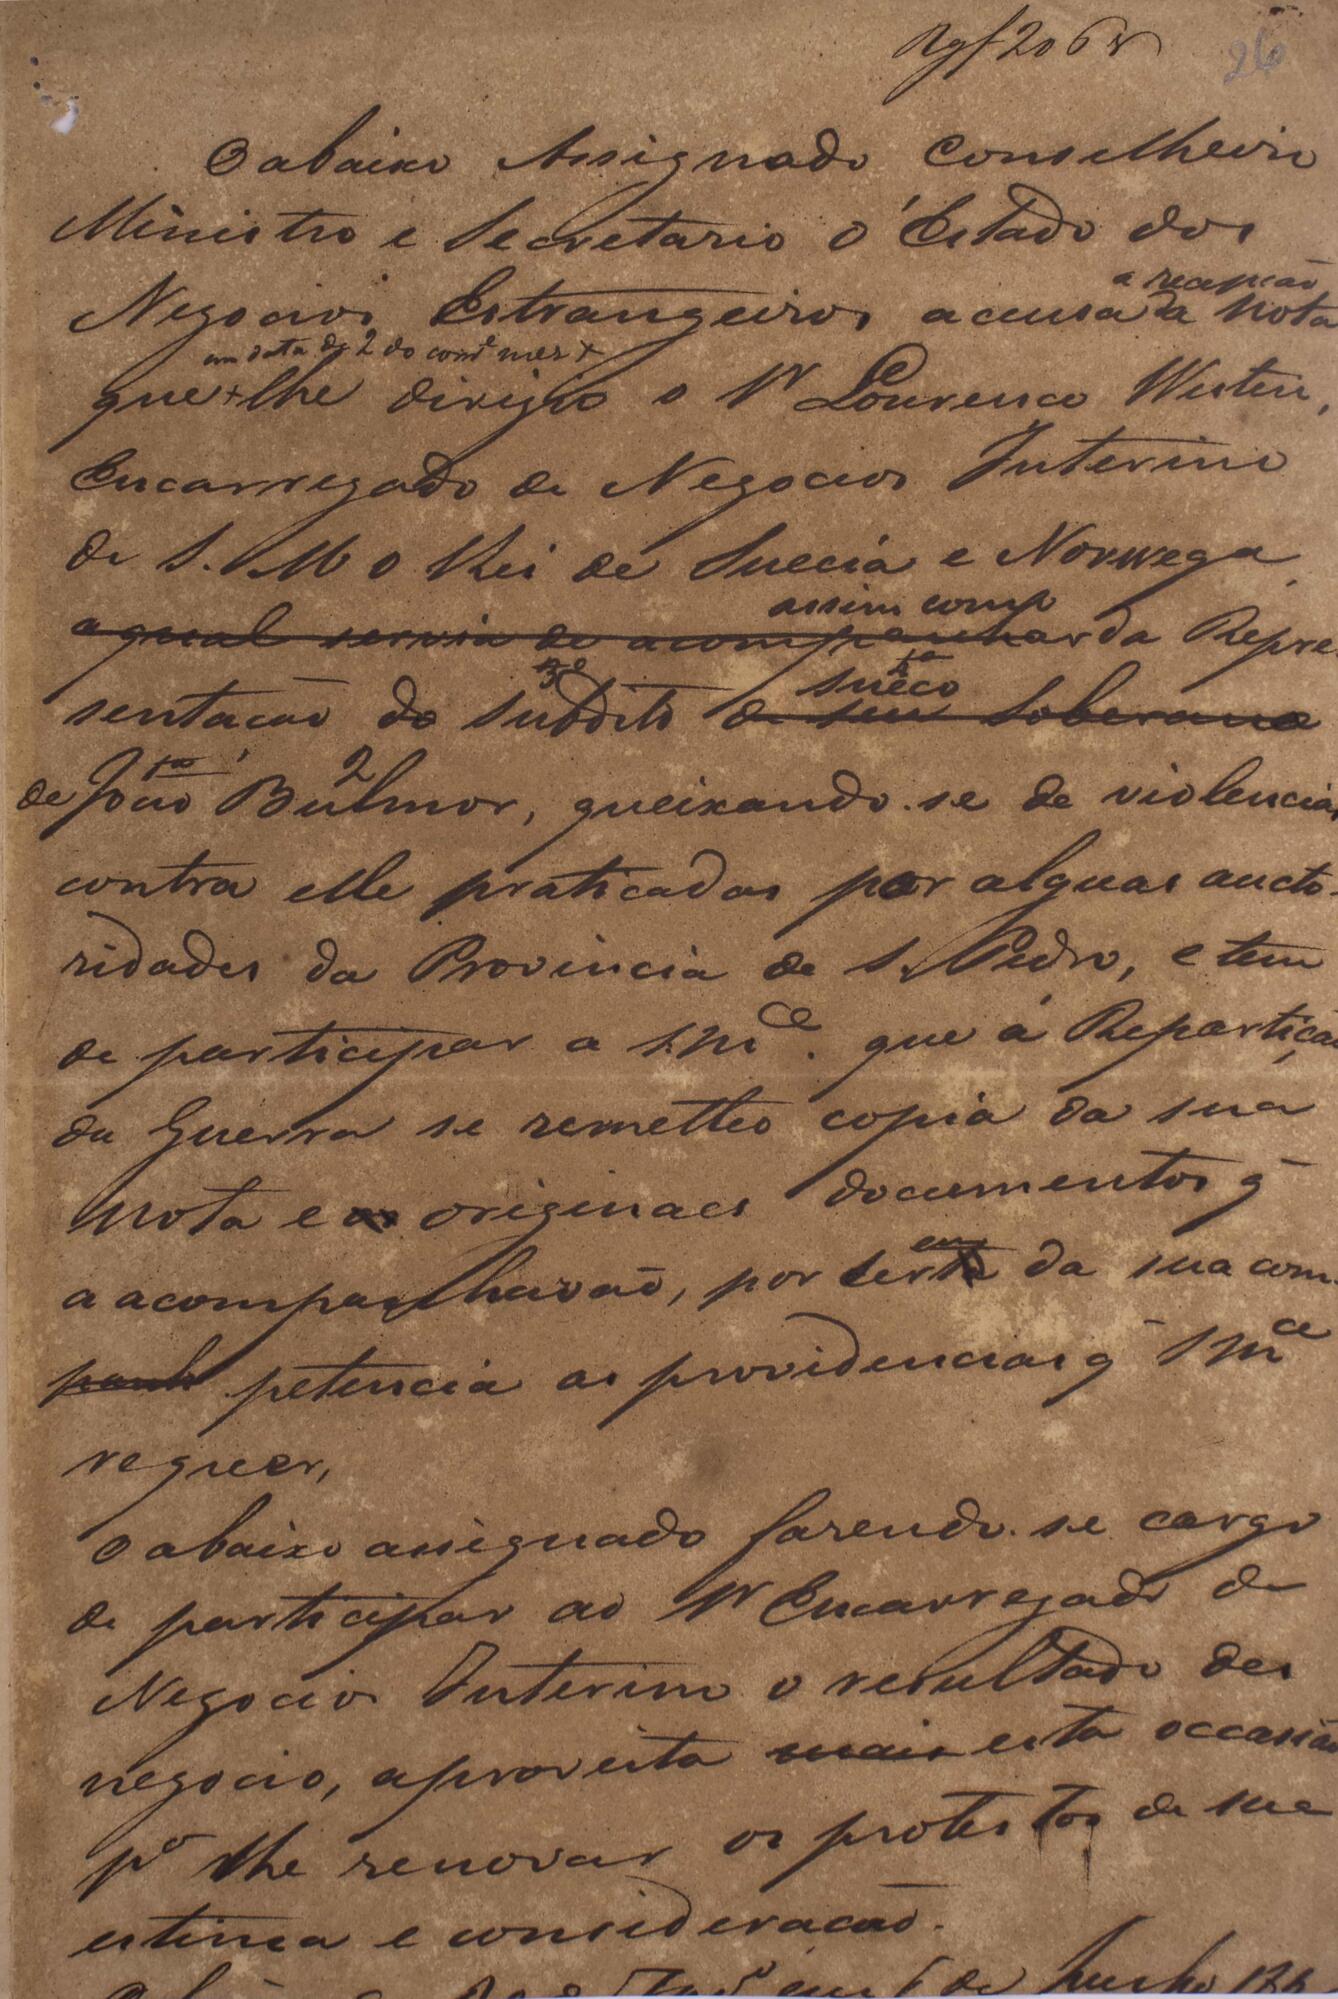 Rgf 206 v
26
O abaixo Assignado Conselheiro
Ministro e Secretario d'Estado dos
a recepção
Negocios Estrangeiros accusa da Nota
em data de 2 do corre mez +
que + lhe dirigio o Sr Lourenço Westin,
Encarregado de Negocios Interino
de S. M. o Rei de Suecia e Norwega
assim como
a qual servia de acompanhar da Repre-
sueco
sentação do subdito de seu Soberano
de João Bulmor, queixando-se de violencias
contra elle praticadas por alguas aucto-
ridades da Provincia de S. Pedro, e tem
de participar a S. Mce. que á Repartição
da Guerra se remetteo copia da sua
Nota e os originaes documentos q̃
a acompanhavão, por serem da sua com-
panh petencia as providencias q̃ S Mce
requer,
O abaixo assignado fazendo-se cargo
de participar ao Sr Encarregado de
Negocios Interino o resultado des
negocio, aproveita mais esta occasião
pa lhe renovar os protestos de sua
estima e consideração.
de Junho